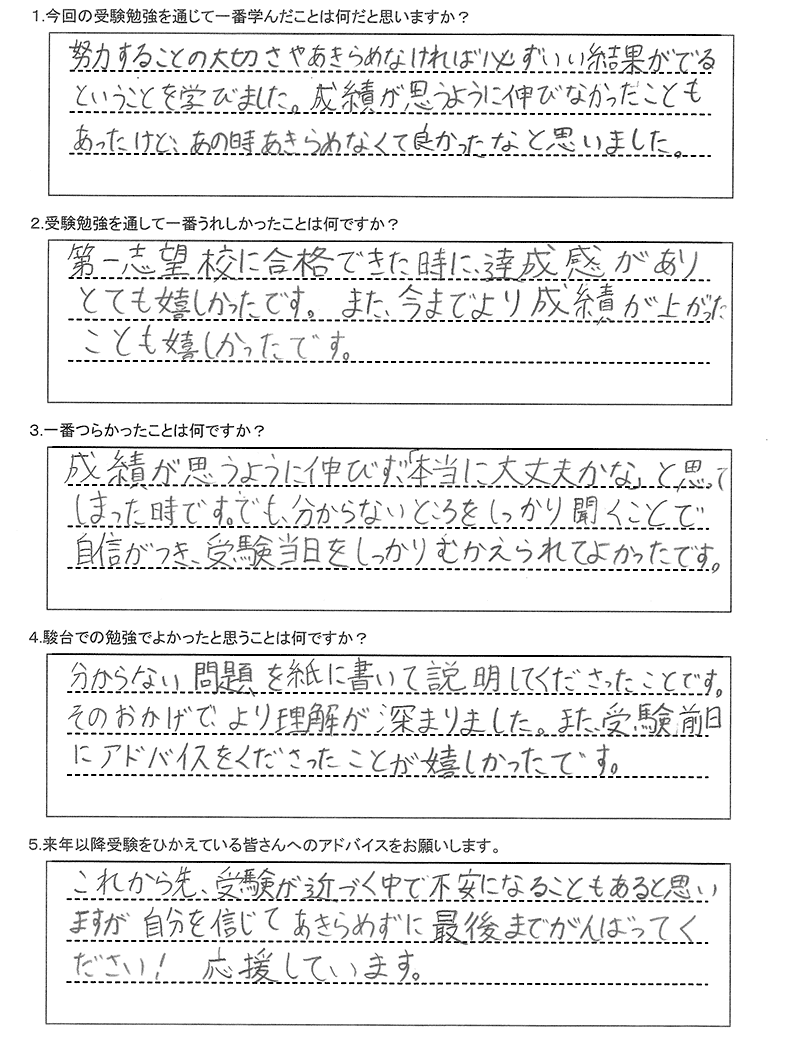 1.今回の受験勉強を通じて一番学んだことは何だと思いますか？
努力することの大切さやあきらめなければ必ずいい結果がでる
ということを学びました。成績が思うように伸びなかったことも
あったけど、あの時あきらめなくて良かったなと思いました。
2.受験勉強を通して一番うれしかったことは何ですか？
第一志望校に合格できた時に、達成感があり
とても嬉しかったです。また、今までより成績が上がった
ことも嬉しかったです。
3.一番つらかったことは何ですか？
成績が思うように伸びず、「本当に大丈夫かな」と思って
しまった時です。でも、分からないところをしっかり聞くことで
自信がつき、受験当日をしっかりむかえられてよかったです。
4.駿台での勉強でよかったと思うことは何ですか？
分からない問題を紙に書いて説明してくださったことです。
そのおかげで、より理解が深まりました。また、受験前日
にアドバイスをくださったことが嬉しかったです。
5.来年以降受験をひかえている皆さんへのアドバイスをお願いします。
これから先、受験が近づく中で不安になることもあると思い
ますが自分を信じてあきらめずに最後までがんばってく
ださい！ 応援しています。